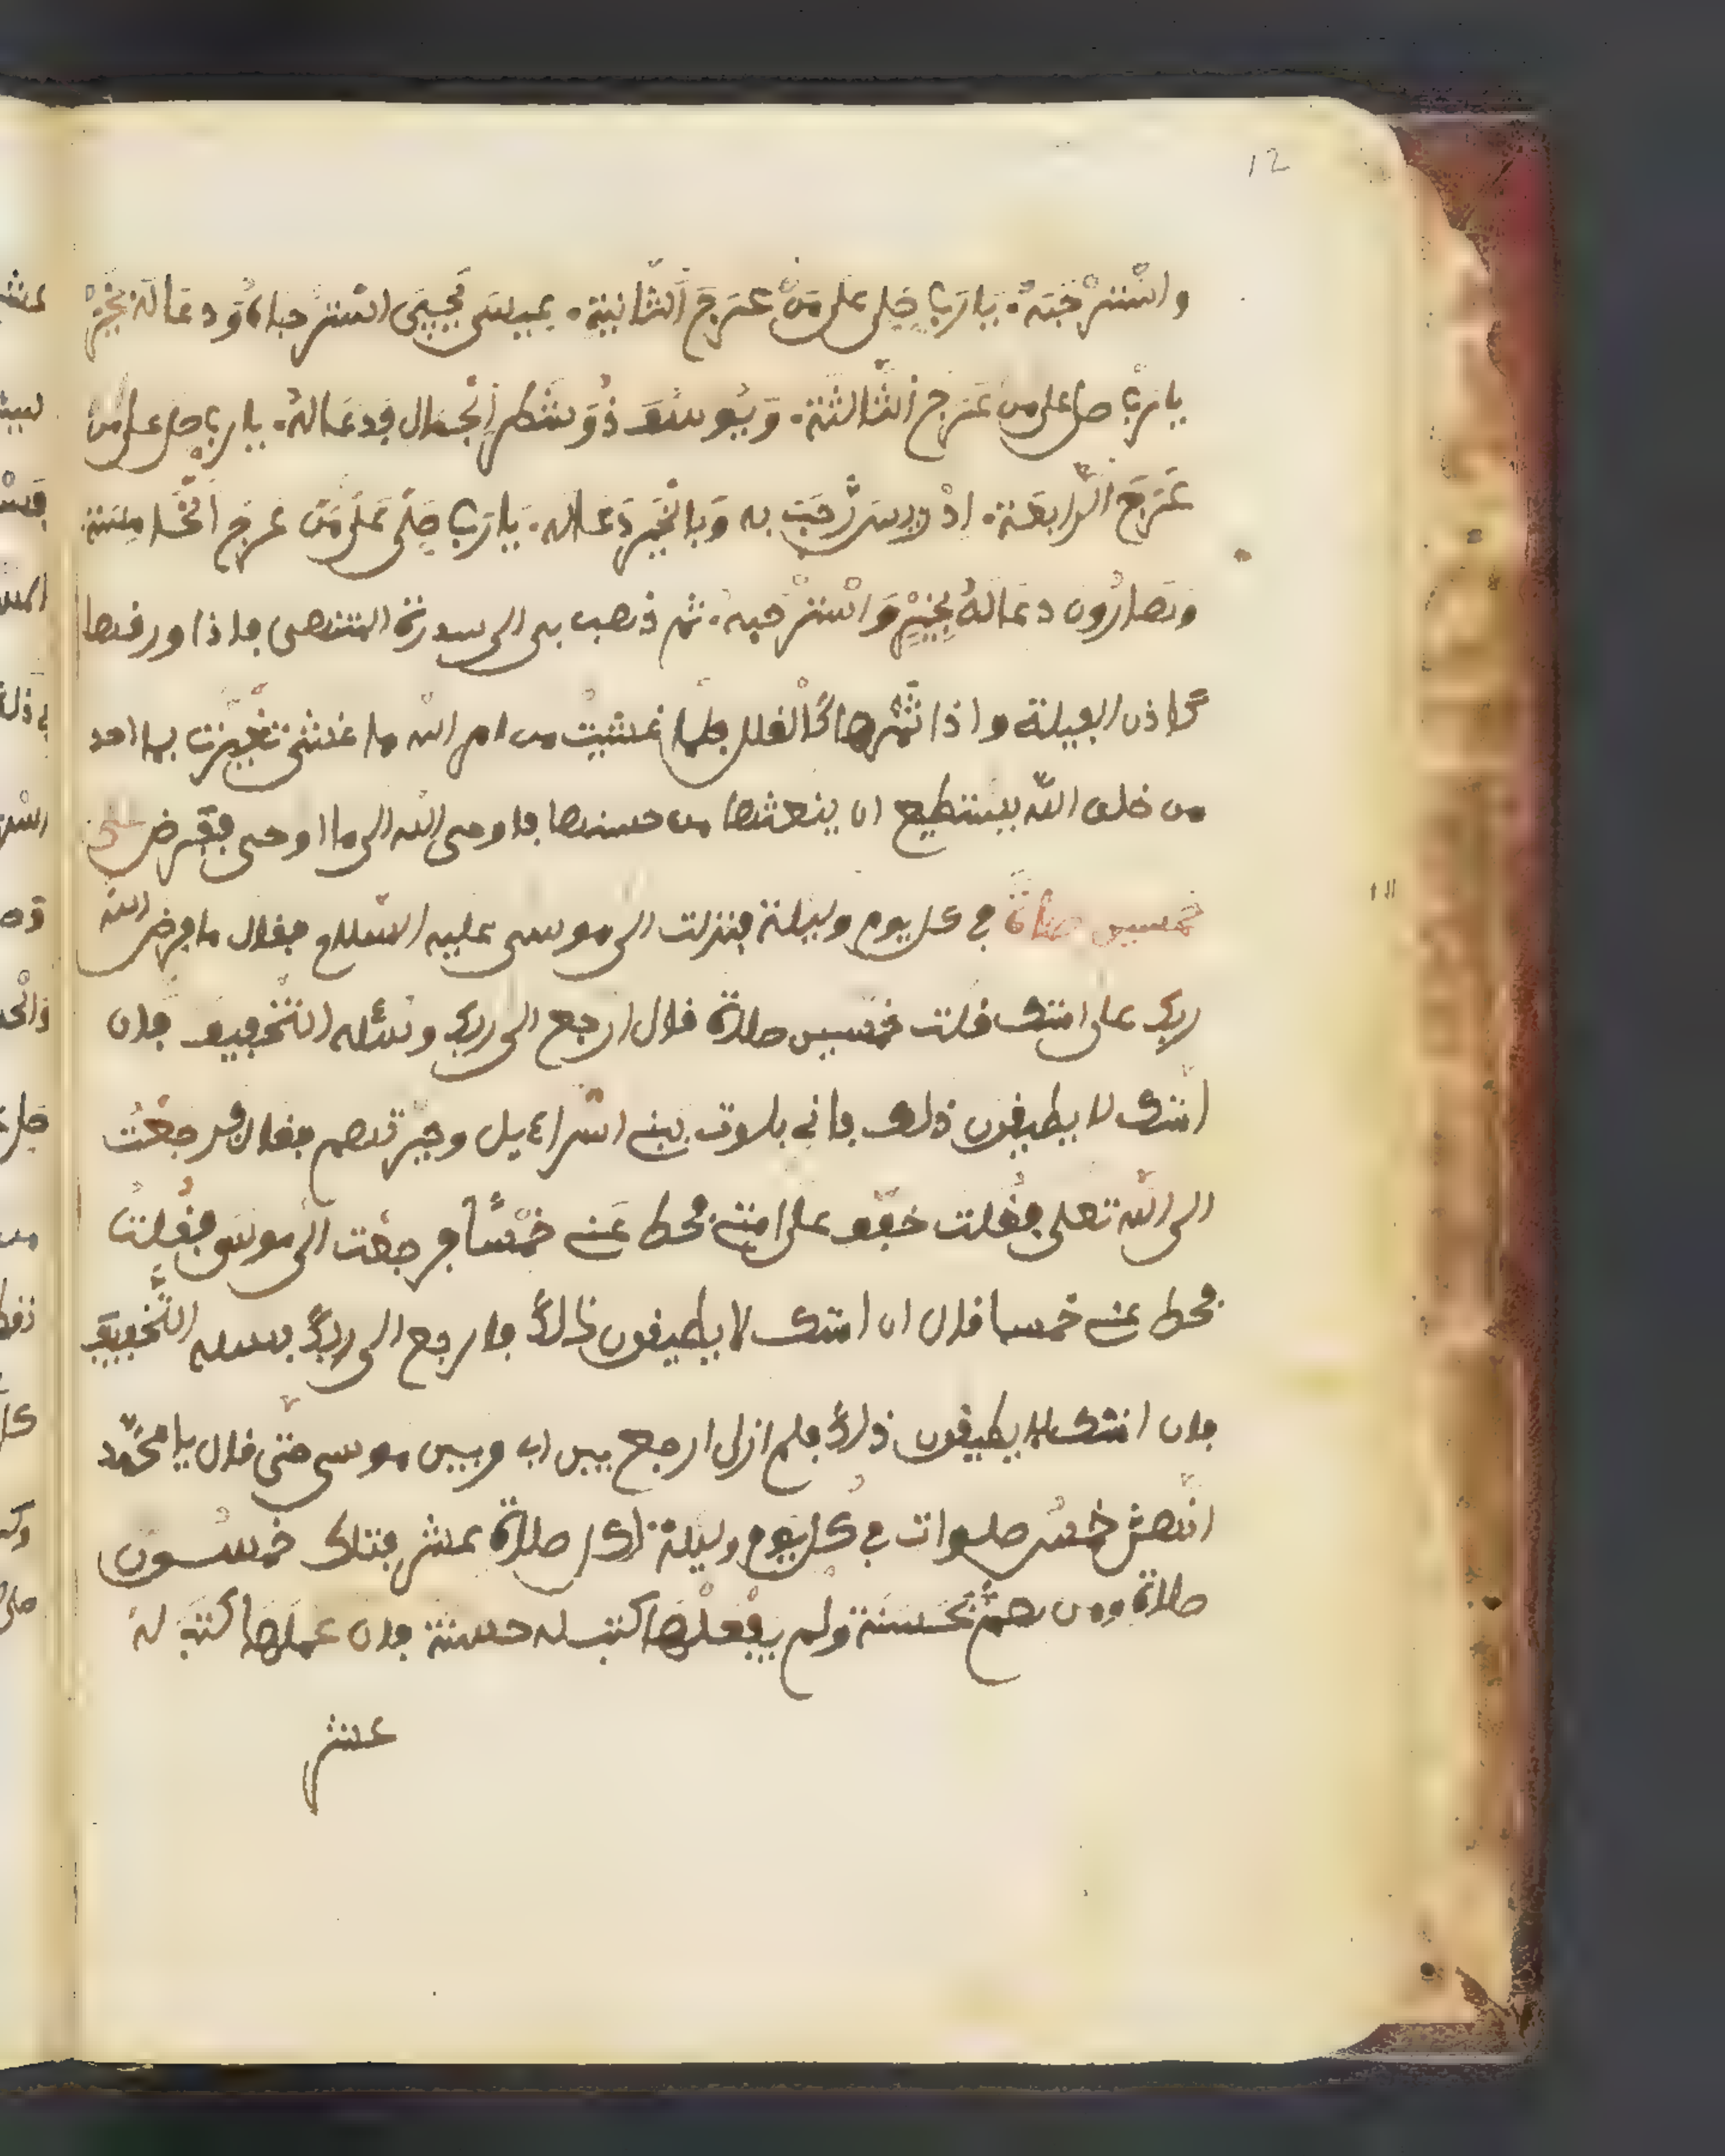 12
واسْتَرْحَبَهُ. يَا رَبِّ صَلِّ عَلَى مَنْ عَرَجَ الثَّانِيَة. عِيسَى يَحْيَى اسْتَرْحبَاهُ وَدعَا لَهُ بِخَيْرْ
يا رَبِّ صل على من عَرَج الثَّالثة. وَيُوسُف ذُو شَطْر الْجمال قد دعَا لهُ. يا رب صل على من
عَرَجَ الرَّابعَة. ادْريس رَّحَبَ به وَبالْخَيْر دَعا له. يَا رَبِّ صَلِّ عَلَى مَن عرجَ الْخَامِسَة
وهَارُون دعَا لهُ بِخَيْرٍ وَاسْترْحبه. ثم ذهب بي الى سدرة المنتهى فاذا ورفها
كاذن الفيلة واذا ثَمْرها كَالْفلل فلما غشيت من امر الله ما غشي تغيرت فما احد
من خلق الله يستطيع ان ينعتها من حسنها فاوحى الله الي ما اوحى ففرض علي
خمسين صلاة في كل يوم وليلة فنزلت الى موسى عليه السلام فقال ما فرض الله
ربك على امتك قلت خمسين صلاة قال ارجع الى ربك وسَئله التخفيف فان
امّتك لا يطيقون ذلك فاني بلوت بني اسراءيل وخبرتهم فقال فرجعْت
الى الله تعلى فقلت خفّف على امتي فحط عَني خمْسًا فرجعْت الى موسى فقُلتُ
فحط عني خمسا قال ان امتك لا يطيقون ذالك فارجع الى ربك فسله التَّخفيفَ
فان امتك لا يطيقون ذلك فلم ازل ارجع بين رب وبين موسى حتى قال يا محَمّد
انّهن خمْس صلوات في كُل يوم وليلة لكل صلاة عشر فتلك خمسُون
صلاة ومن همَّ بحَسنَة ولم يفْعلْهَا كتب له حسنة فان عملهَا كتبَ لهُ
عشر